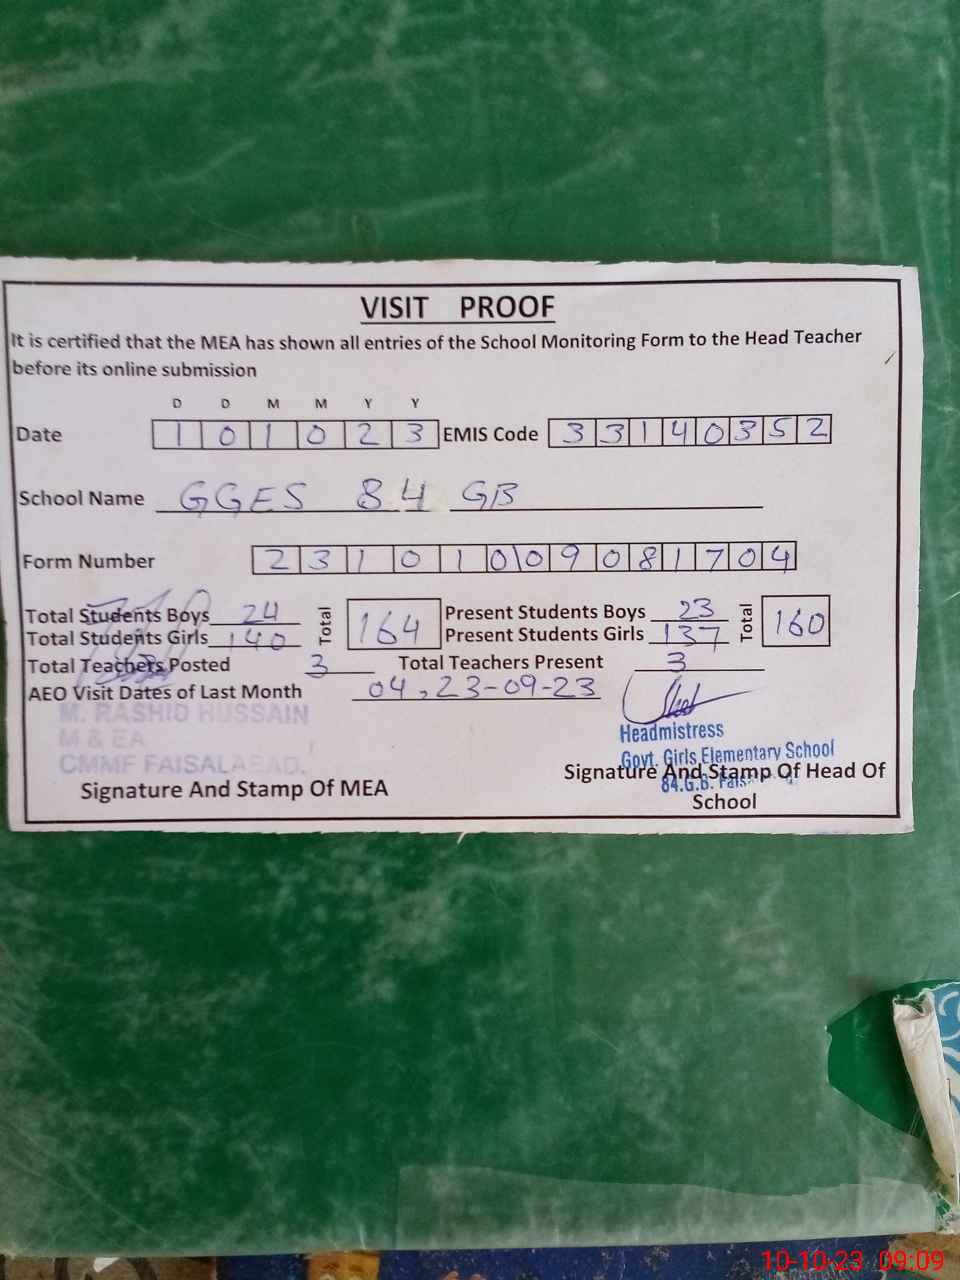 VISIT PROOF
It is certified that the MEA has shown all entries of the School Monitoring Form to the Head Teacher
before its online submission
D D M M Y Y
Date 1 0 1 0 2 3 EMIS Code 3 3 1 4 0 3 5 2
School Name GGES 84 GB
Form Number 2 3 1 0 1 0 0 9 0 8 1 7 0 4
Total Students Boys 24 Total 164 Present Students Boys 23 Total 160
Total Students Girls 140 Present Students Girls 137
Total Teachers Posted 3 Total Teachers Present 3
AEO Visit Dates of Last Month 04, 23-09-23
M. RASHID HUSSAIN
M & EA
CMMF FAISALABAD.
Signature And Stamp Of MEA
Headmistress
Govt. Girls Elementary School
84.G.B.
Signature And Stamp Of Head Of
School
10-10-23 09:09